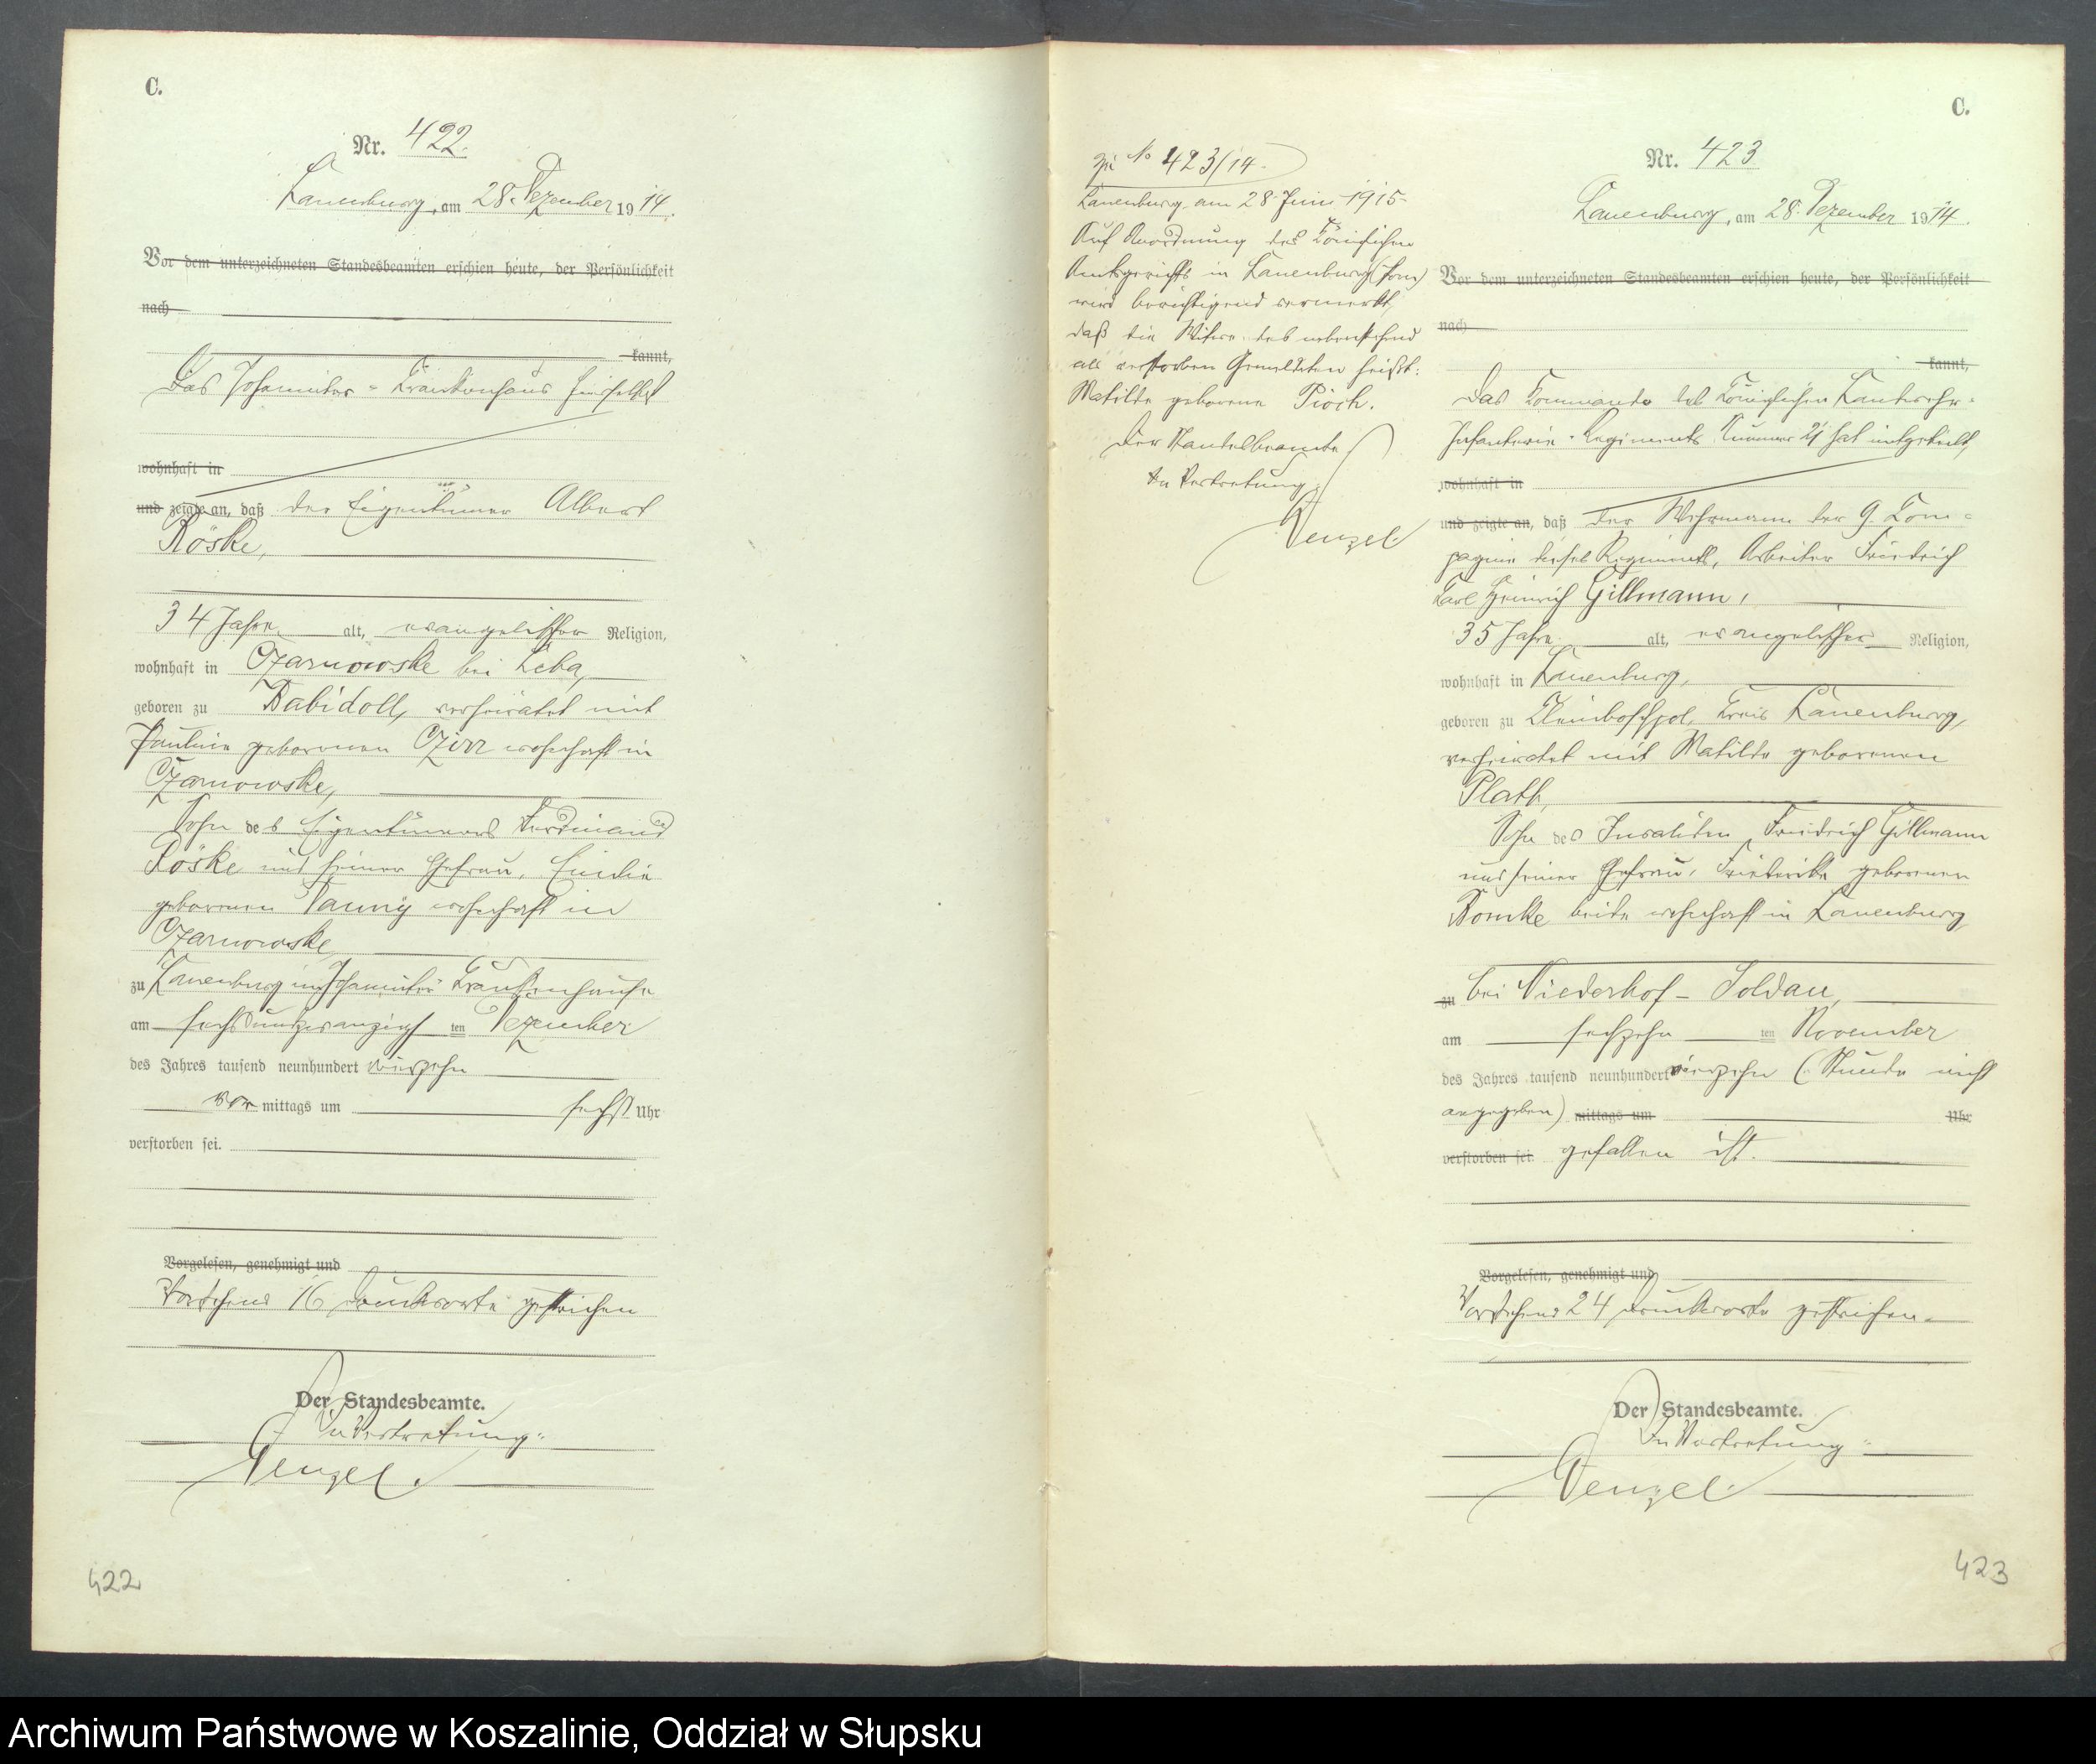 C.
Nr. 422.
Lauenburg, am 28. Dezember 1914.
Vor dem unterzeichneten Standesbeamten erschien heute, der Persönlichkeit
nach
kannt,
Das Johanniter-Krankenhaus hierselbst
wohnhaft in
und zeigte an, daß der Eigentümer Albert
Röske,
34 Jahre alt, evangelischer Religion,
wohnhaft in Czarnowske bei Leba,
geboren zu Babidoll, verheiratet mit
Pauline geborenen Czirr wohnhaft in
Czarnowske,
Sohn des Eigentümers Ferdinand
Röske und seiner Ehefrau, Emilie
geborenen wohnhaft in
Czarnowske
zu Lauenburg im Johanniter-Krankenhause
am sechsundzwanzigsten Dezember
des Jahres tausend neunhundert vierzehn
vormittags um sechs Uhr
verstorben sei.
Vorgelesen, genehmigt und
Vorstehend 16 Druckworte gestrichen
Der Standesbeamte.
In Vertretung:
Wenzel.
422
zu No 423/14.
Lauenburg am 28. Juni 1915.
Auf Anordnung des Königlichen
Amtsgerichts in Lauenburg (Pom)
wird berichtigend vermerkt,
daß die Witwe des nebenstehend
als verstorben Gemeldeten heißt:
Matilde geborene Pioch.
Der Standesbeamte
In Vertretung:
Wenzel
C.
Nr. 423
Lauenburg, am 28. Dezember 1914.
Vor dem unterzeichneten Standesbeamten erschien heute, der Persönlichkeit
nach
kannt,
Das Kommando des Königlichen Landwehr-
Infanterie-Regiments Nummer 21 hat mitgeteilt,
wohnhaft in
und zeigte an, daß der Wehrmann der 9. Kom-
pagnie dieses Regiments, Arbeiter Friedrich
Karl Heinrich Gillmann,
35 Jahre alt, evangelischer Religion,
wohnhaft in Lauenburg,
geboren zu Kleinboschpol, Kreis Lauenburg,
verheiratet mit Matilde geborenen
Plath,
Sohn des Invaliden Friedrich Gillmann
und seiner Ehefrau, Friederike geborenen
Bomke beide wohnhaft in Lauenburg
zu bei Niederhof-Soldau,
am sechzehnten November
des Jahres tausend neunhundert vierzehn (Stunde nicht
angegeben) mittags um Uhr
verstorben sei gefallen ist.
Vorgelesen, genehmigt und
Vorstehend 24 Druckworte gestrichen.
Der Standesbeamte.
In Vertretung:
Wenzel.
423
Archiwum Państwowe w Koszalinie, Oddział w Słupsku